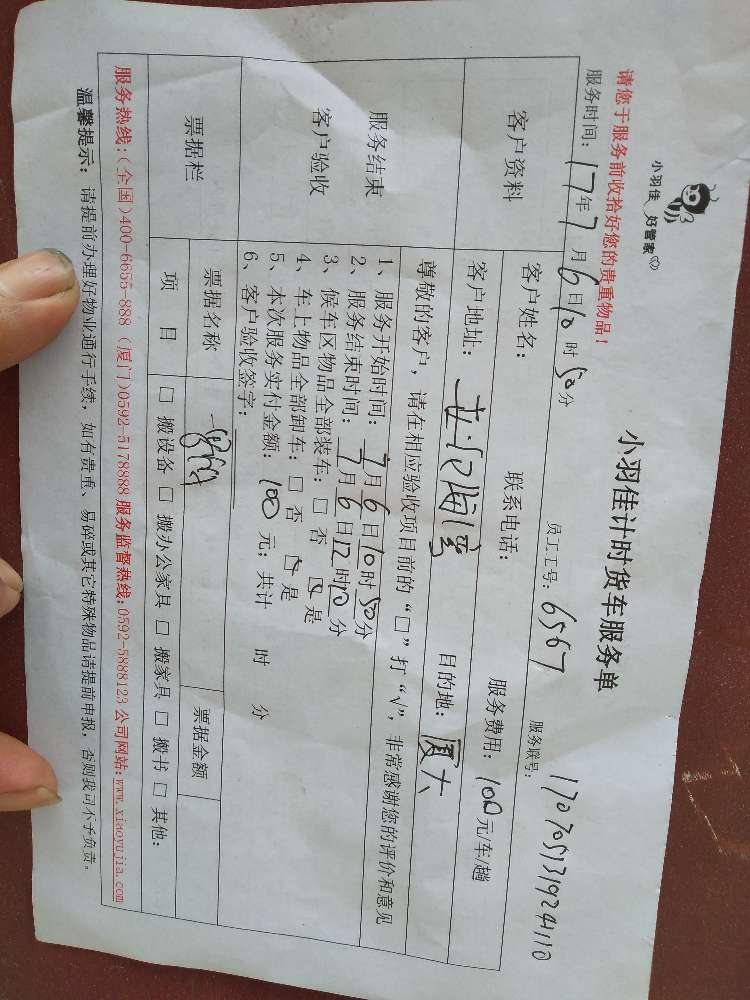 小羽佳 好管家
小羽佳计时货车服务单
请您于服务前收拾好您的贵重物品！
服务时间：17年7月6日10时50分 员工工号：6567 服务联号：1707051319241110
客户资料 客户姓名： 联系电话： 服务费用：100元/车/趟
客户地址： 目的地：厦大
服务结束
客户验收
尊敬的客户，请在相应验收项目前的“□”打“√”，非常感谢您的评价和意见
1、服务开始时间：7月6日10时50分
2、服务结束时间：7月6日12时10分
3、候车区物品全部装车：□ 否 □ 是
4、车上物品全部卸车：□ 否 □ 是
5、本次服务实付金额：100元；共计 时 分
6、客户验收签字：
票据栏 票据名称 票据金额
项 目 □ 搬设备 □ 搬办公家具 □ 搬家具 □ 搬书 □ 其他：
服务热线：(全国)400-6655-888 (厦门)0592-5178888 服务监督热线:0592-5888123 公司网站:www.xiaoyujia.com
温馨提示： 请提前办理好物业通行手续，如有贵重、易碎或其它特殊物品请提前申报，否则我司不予负责。